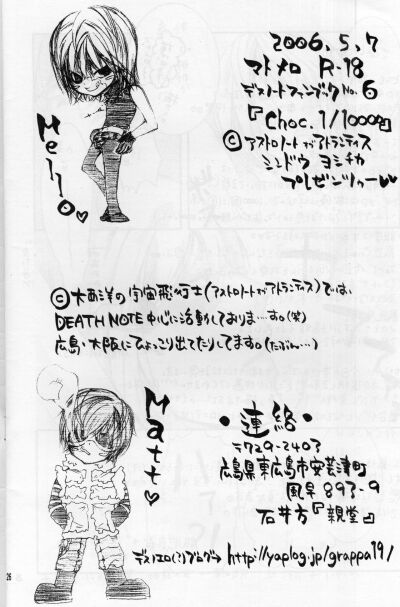 2006.5.7
マトメロ R-18
デスノートファンブック No.6
『Choc.1/1000』
©アストロノートオブアトランティス
シンドウ ヨシチカ
プレゼンツゥー♥
Mello♥
©大西洋の宇宙飛行士(アストロノートオブアトランティス)では、
DEATH NOTE中心に活動しておりま…す。(笑)
広島・大阪にひょっこり出てたりしてます。(たぶん…)
Matt♥
・連絡・
〒729-2403
広島県東広島市安芸津町
風早893-9
石井方『親堂』
http://yaplog.jp/grappa19/
26